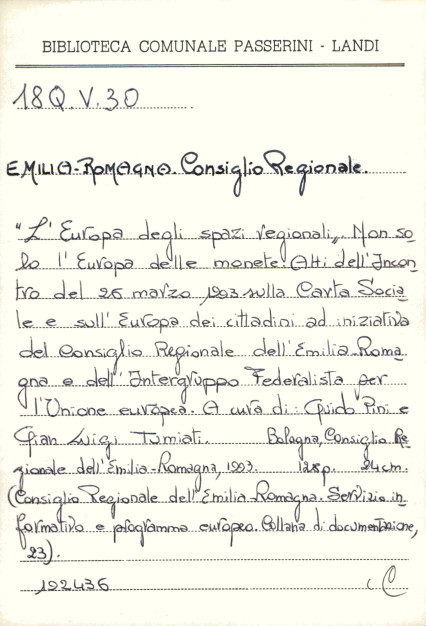 BIBLIOTECA COMUNALE PASSERINI - LANDI
18Q.V.30
EMILIA-ROMAGNA. Consiglio Regionale.
"L'Europa degli spazi regionali". Non so
lo l'Europa delle monete. Atti dell'Incon
tro del 26 marzo 1993 sulla Carta Socia
le e sull'Europa dei cittadini ad iniziativa
del Consiglio Regionale dell'Emilia-Roma
gna e dell'Intergruppo Federalista per
l'Unione europea. A cura di: Guido Pini e
Gian Luigi Tumiati. Bologna, Consiglio Re
gionale dell'Emilia-Romagna, 1993. 128p. 24cm.
(Consiglio Regionale dell'Emilia-Romagna. Servizio in
formativo e programma europeo. Collana di documentazione,
23).
192436 C